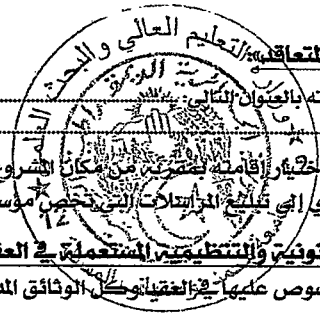 التعليم العالي والبحث العلمي
لتعاقد
ته بالعنوان التالي:
ختيار إقامته بمقربة من مكان المشروع
ي إلى تبليغ المراسلات التي تخص مؤس
نونية والتنظيمية المستعملة في العق
سوص عليها في العقد وكل الوثائق المد